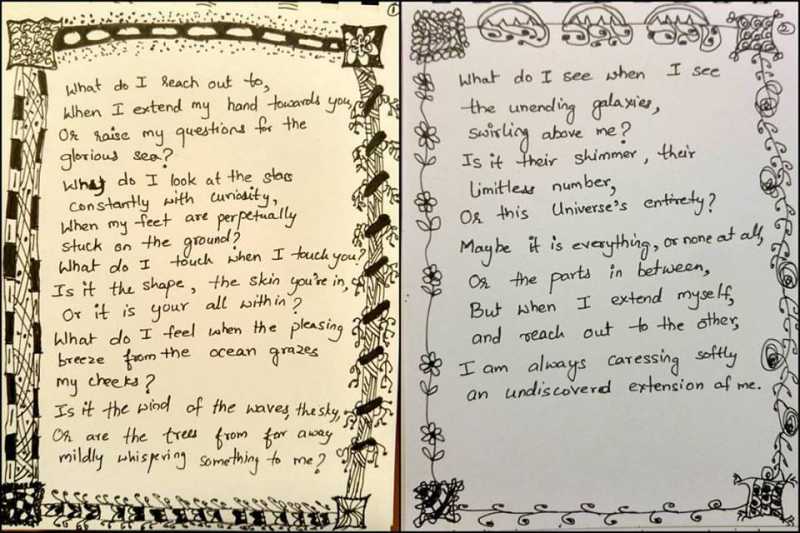 1
What do I reach out to,
When I extend my hand towards you,
Or raise my questions for the
glorious sea?
Why do I look at the stars
constantly with curiosity,
When my feet are perpetually
stuck on the ground?
What do I touch when I touch you?
Is it the shape, the skin you're in,
Or it is your all within?
What do I feel when the pleasing
breeze from the ocean grazes
my cheeks?
Is it the wind of the waves, the sky,
Or are the trees from far away
mildly whispering something to me?
2
What do I see when I see
the unending galaxies,
swirling above me?
Is it their shimmer, their
limitless number,
Or this Universe's entirety?
Maybe it is everything, or none at all,
Or the parts in between,
But when I extend myself,
and reach out to the other,
I am always caressing softly
an undiscovered extension of me.